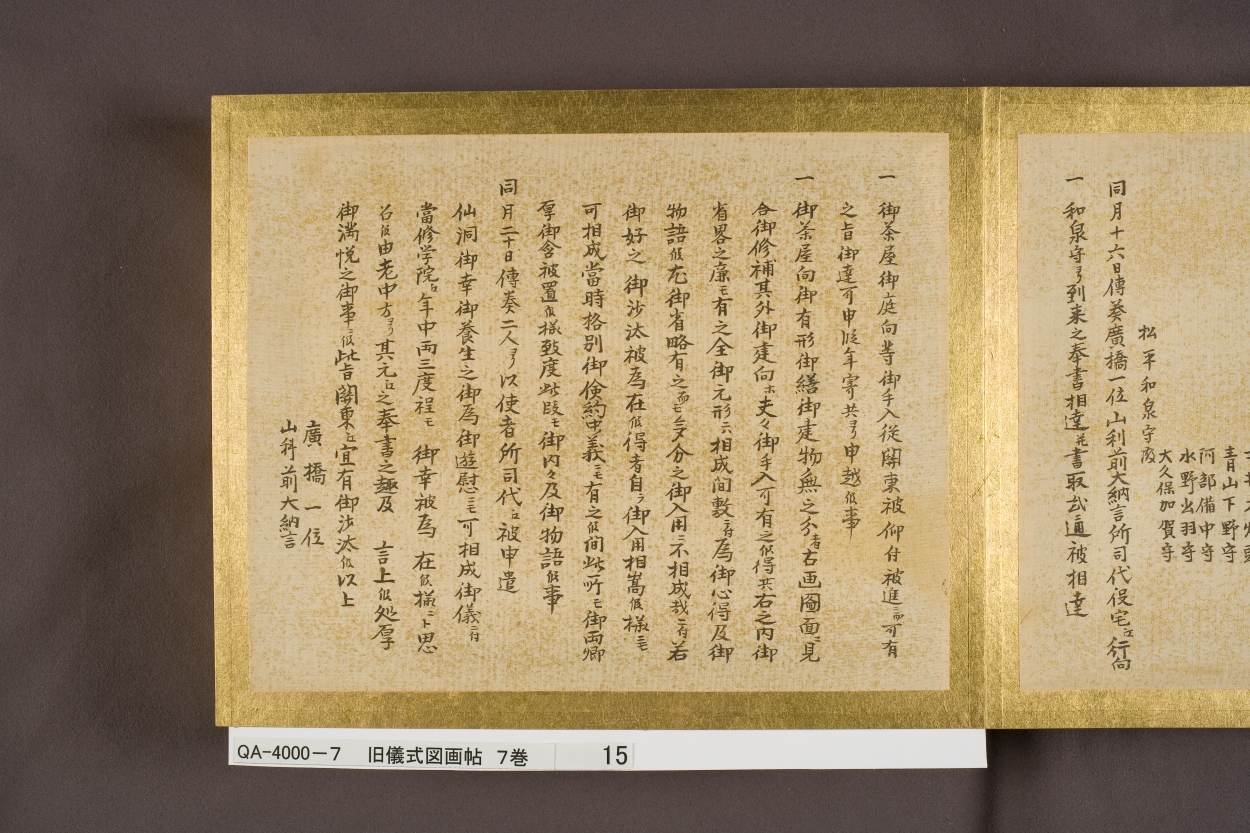 大久保加賀守
水野出羽守
阿部備中守
青山下野守
松平和泉守殿
同月十六日傳奏廣橋一位山科前大納言所司代役宅江行向
一 和泉守ゟ到来之奉書相達并書取弐通被相達
一 御茶屋御庭向等御手入従関東被仰付被進二而可有
之旨御達可申候年寄共ゟ申越候事
一 御茶屋向御有形御繕御建物無之分者右画図面二見
合御修補其外御建向ホ夫々御手入可有之候得共右之内御
省略之廉モ有之全御元形二相成間敷二付為御心得及御
物語候尤御省略有之而モ多分之御入用二不相成哉二付若
御好之 御沙汰被為在候得者自ラ御入用相嵩候様二モ
可相成當時格別御倹約中義二モ有之候間此所モ御両卿
厚御含被置候様致度此段モ御内々及御物語候事
同月二十日傳奏二人ゟ以使者所司代江被申遣
仙洞御幸御養生之御為御遊慰二モ可相成御儀二付
當修学院江年中両三度程モ 御幸被為 在候様二ト思
召候由老中方ゟ其元江之奉書之趣及 言上候処厚
御満悦之御事二候此旨関東江宜有御沙汰候以上
廣橋一位
山科前大納言
QA-4000-7 旧儀式図画帖 7巻 15